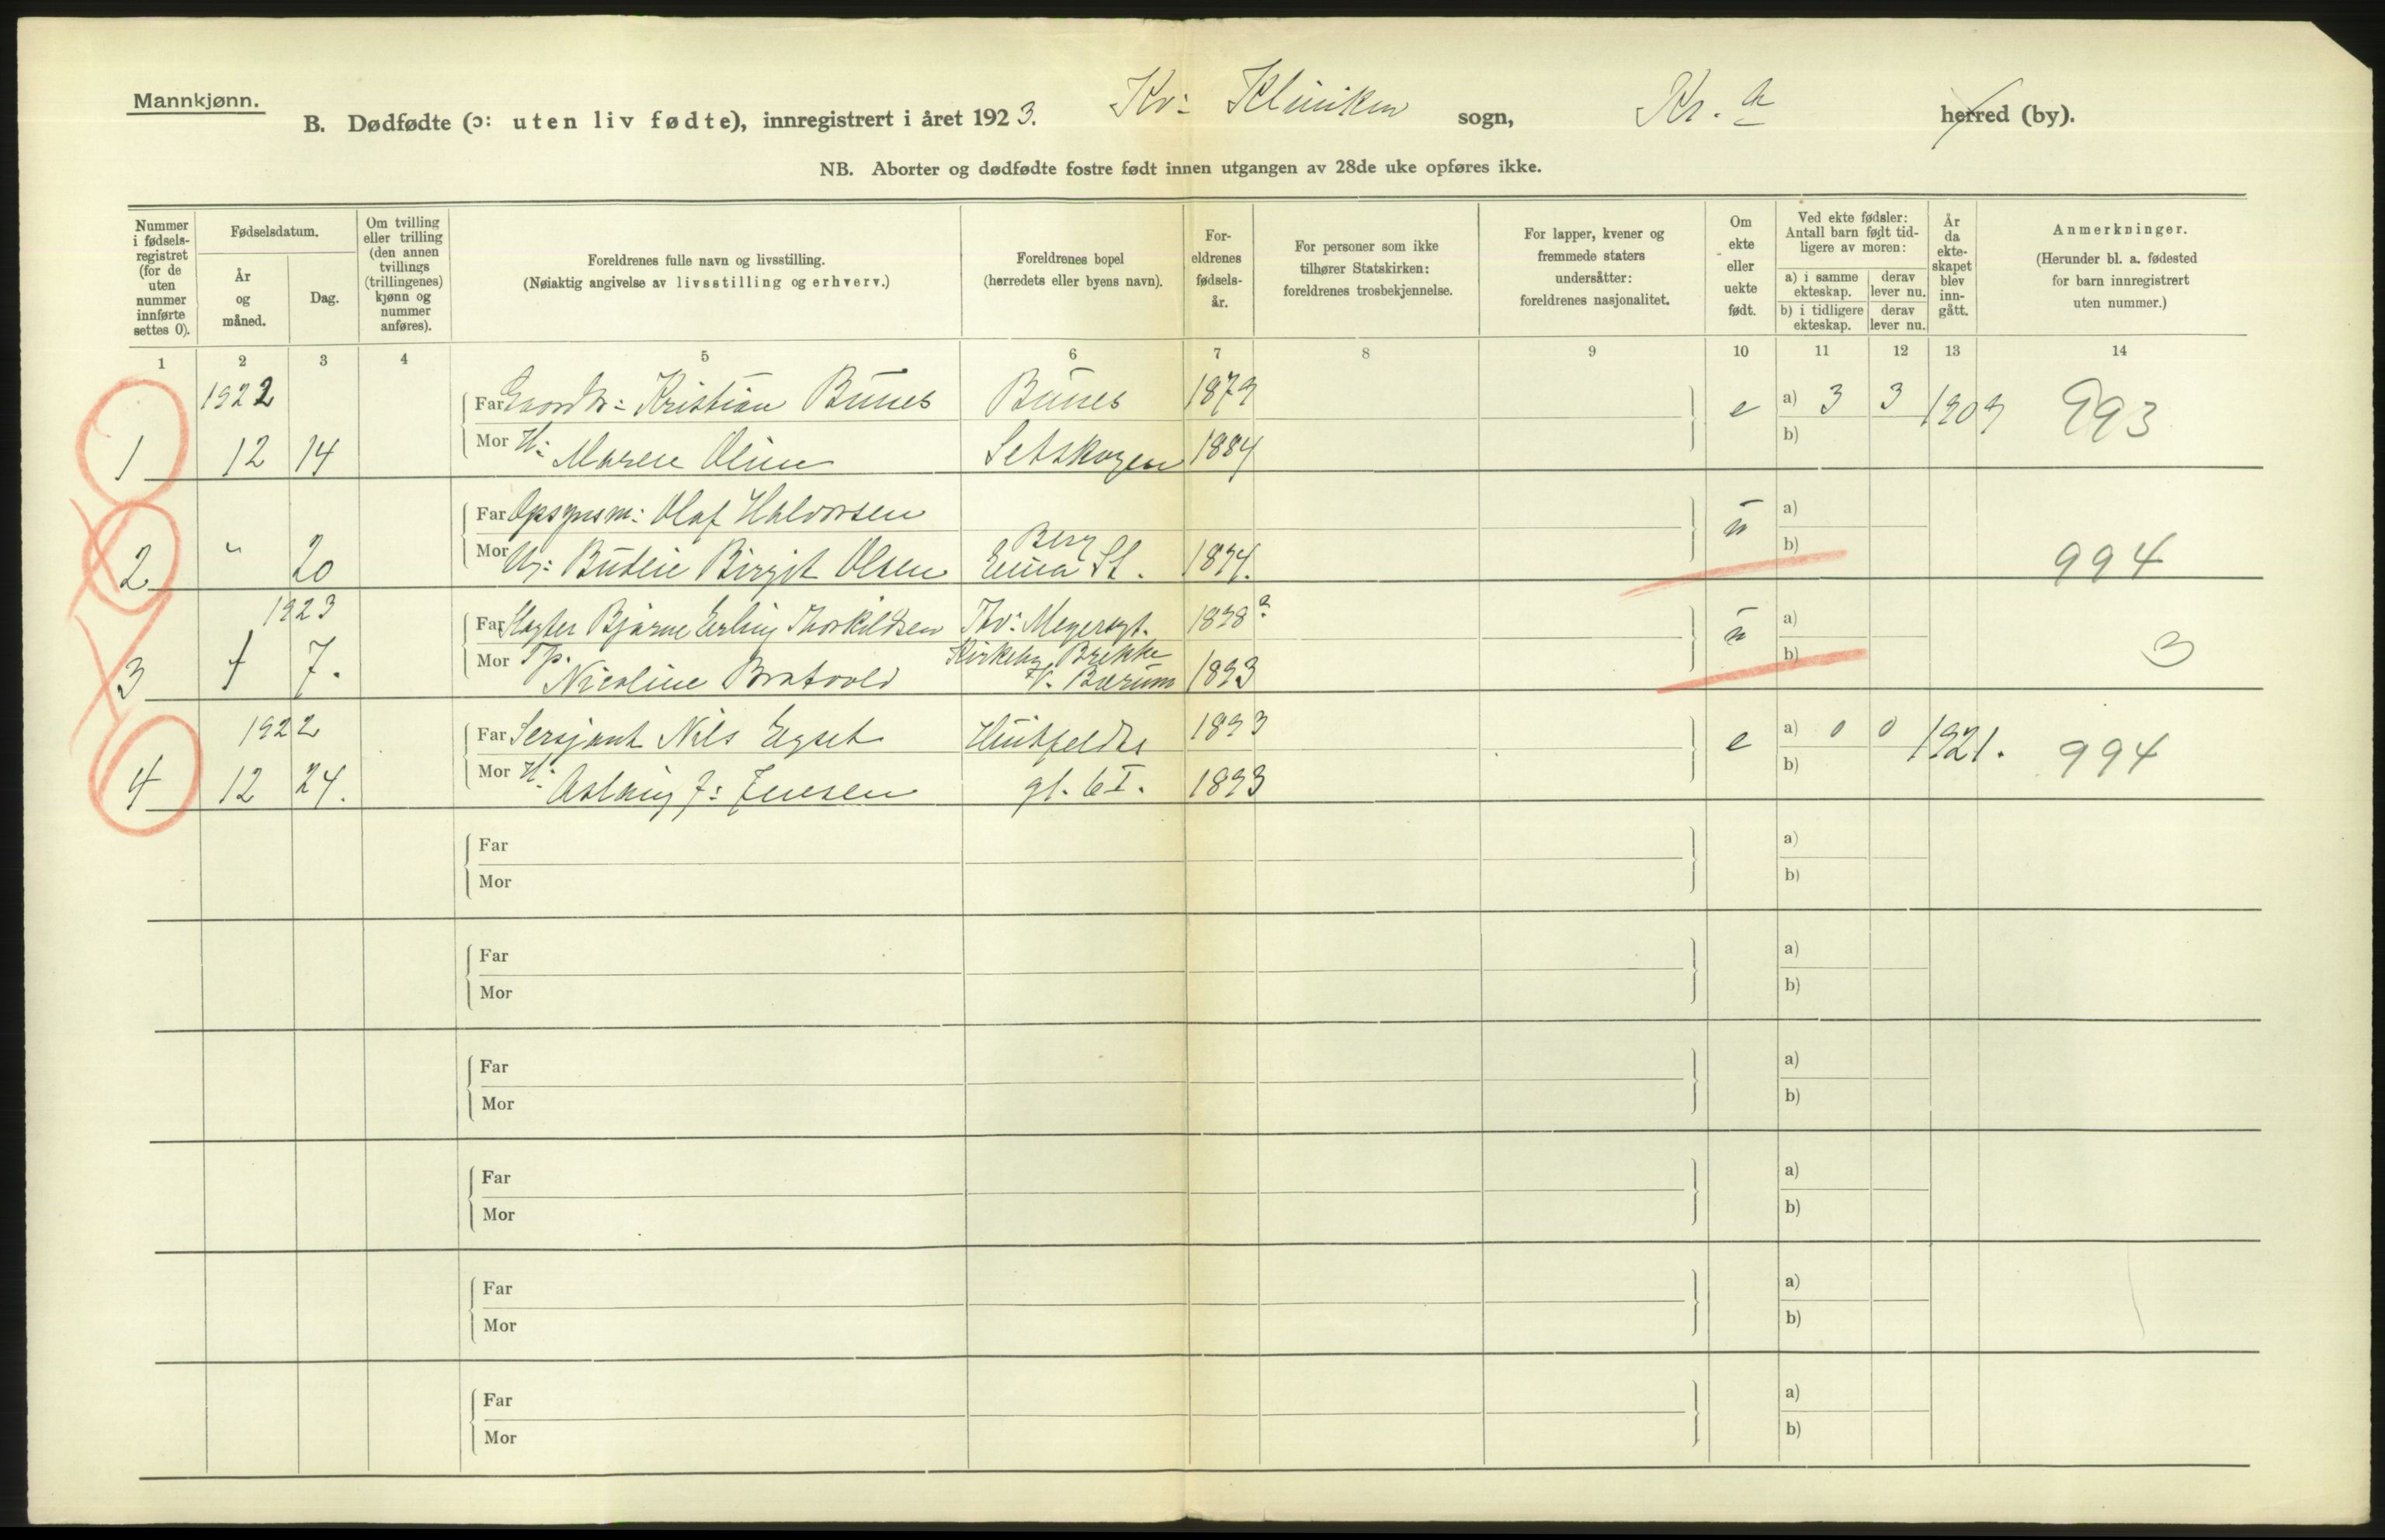 Mannkjønn.
B. Dødfødte (ɔ: uten liv fødte), innregistrert i året 1923. Kv: Kliniken sogn, Kr. a herred (by).
NB. Aborter og dødfødte fostre født innen utgangen av 28de uke opføres ikke.
Nummer i fødselsregistret (for de uten nummer innførte settes 0).
Fødselsdatum.
År og måned.
Dag.
Om tvilling eller trilling (den annen tvillings (trillingenes) kjønn og nummer anføres).
Foreldrenes fulle navn og livsstilling.
(Nøiaktig angivelse av livsstilling og erhverv.)
Foreldrenes bopel
(herredets eller byens navn).
Foreldrenes fødselsår.
For personer som ikke tilhører Statskirken: foreldrenes trosbekjennelse.
For lapper, kvener og fremmede staters undersåtter: foreldrenes nasjonalitet.
Om ekte eller uekte født.
Ved ekte fødsler: Antall barn født tidligere av moren:
a) i samme ekteskap. derav lever nu.
b) i tidligere ekteskap. derav lever nu.
År da ekteskapet blev inngått.
Anmerkninger.
(Herunder bl. a. fødested for barn innregistrert uten nummer.)
1 2 3 4 5 6 7 8 9 10 11 12 13 14
1922 Far Kristian Bunes Bunes 1879 e a) 3 3 1909 993
1 12 14 Mor H: Maren Oline Setskogen 1884 b)
Far Olaf Halvorsen u a)
2 " 20 Mor Ug: Budeie Birgit Olsen Berg St. 1894. b) 994
1923 Far Bjarne Erling Thorkildsen Thv: Meyersgt. 1898? u a)
3 1 7. Mor Tp. Nicoline Bratvold Kirkeby Brekke V. Bærum 1893 b) 3
1922 Far Sersjant Nils Egset Huitfeldts 1893 e a) 0 0 1921. 994
4 12 24. Mor H: Aslaug J: Jensen gt. 6 I. 1893 b)
Far a)
Mor b)
Far a)
Mor b)
Far a)
Mor b)
Far a)
Mor b)
Far a)
Mor b)
Far a)
Mor b)